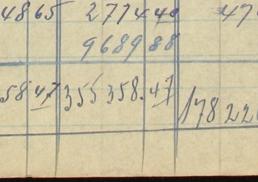 4865 277440 47
968988
5847 355358.47 178 22